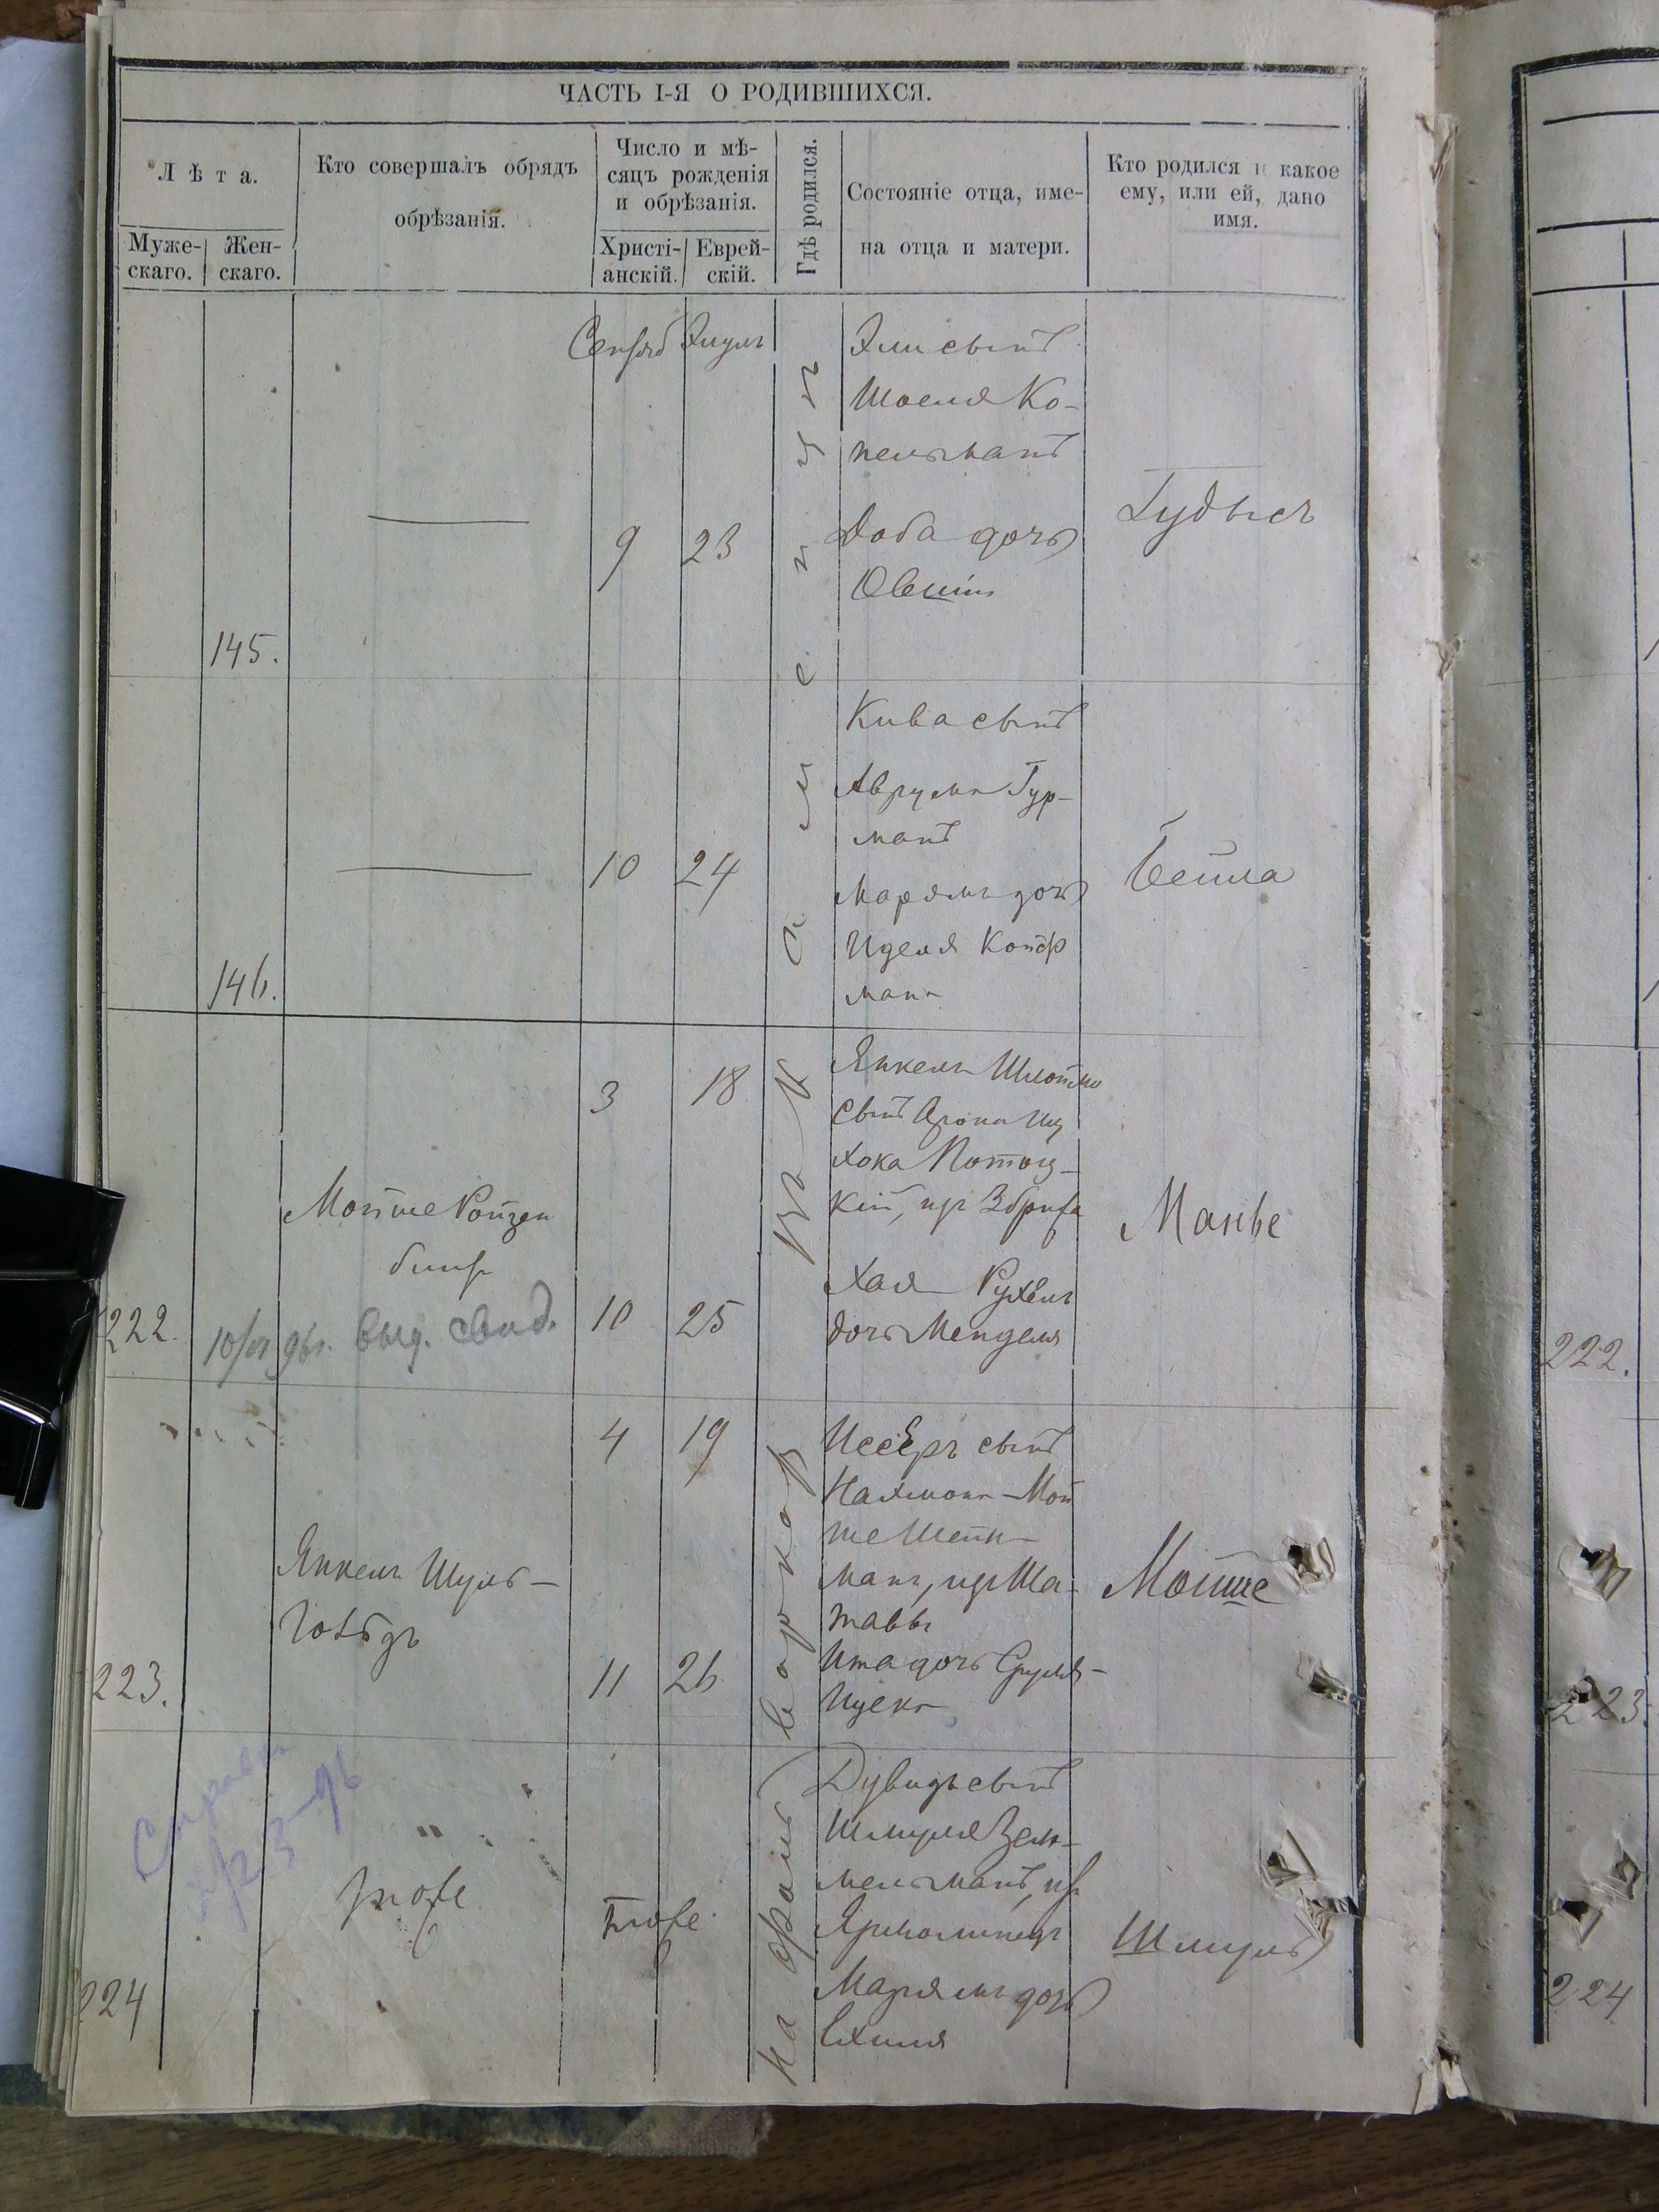 ЧАСТЬ I-Я О РОДИВШИХСЯ.
Лѣта.
Муже-
скаго.
Жен-
скаго.
Кто совершалъ обрядъ
обрѣзанія.
Число и мѣ-
сяцъ рожденія
и обрѣзанія.
Христі-
анскій.
Еврей-
скій.
Гдѣ родился.
Состояніе отца, име-
на отца и матери.
Кто родился и какое
ему, или ей, дано
имя.
145.
Сентяб
9
Элулъ
23
Эли сынъ
Шоеля Ко-
пельманъ
Доба дочь
Овшія
Гудысъ
146.
10
24
Кива сынъ
Аврума Гур-
манъ
Марямъ дочь
Иделя Койф
мана
Бейла
222.
10/VI 96г. выд. свид.
Мойше Ройзен
блит
3
10
18
25
Янкель Шлойме
сынъ Арона Иц
хока Потоц-
кій, изъ Збрижа
Хая Рухель
дочь Менделя
Манье
223.
Янкель Шуль-
гойфъ
4
11
19
26
Иссеръ сынъ
Нахмона-Мой
ше Шейн-
манъ, изъ Ша-
тавы
Ита дочь Сруля-
Ицека
Мойше
224
тоже
тоже
Дувидъ сынъ
Шмуля Зель-
мельманъ, изъ
Ярмолинецъ
Марямъ дочь
Ехиля
Шмуль
222.
223.
224